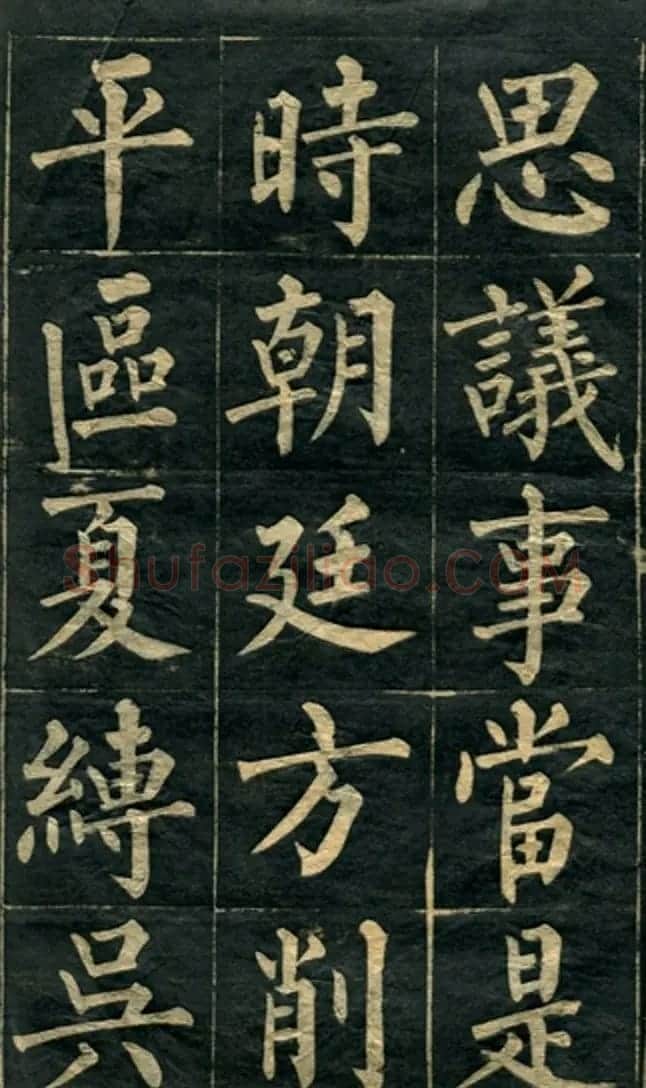 思議事當是
時朝廷方削
平區夏縛吳
Shufaziliao.COM